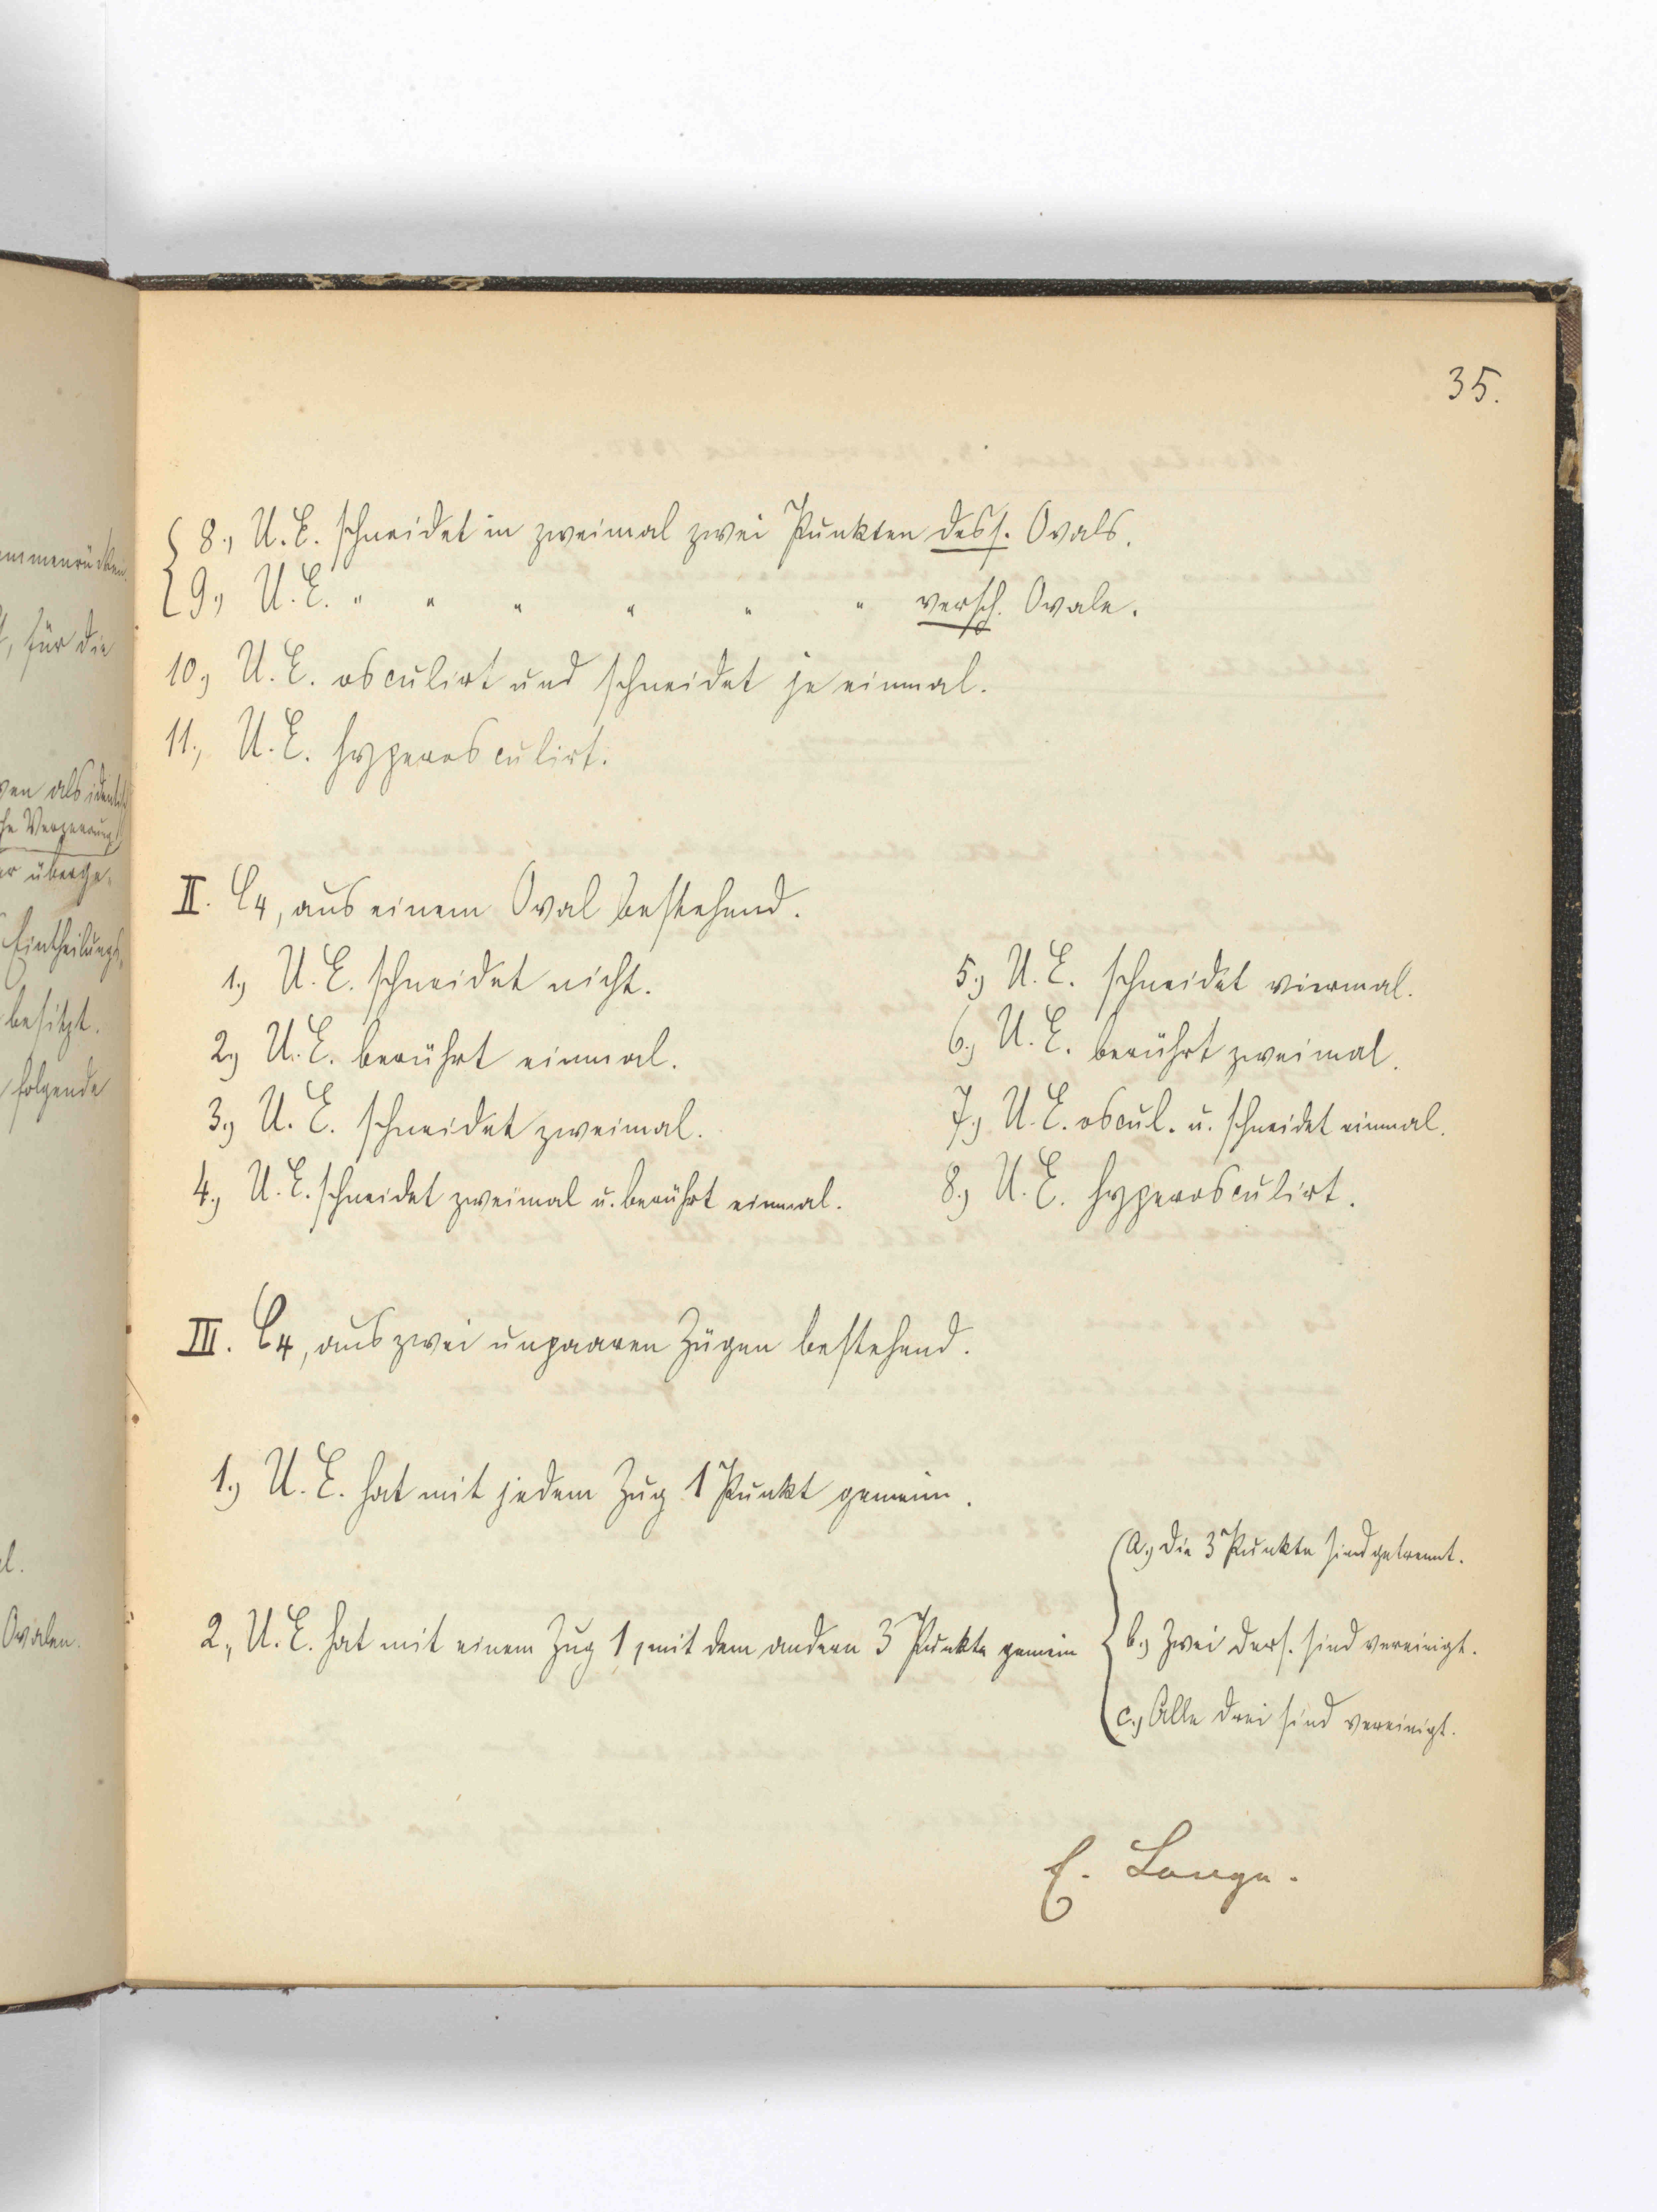 ammenrücken.
, für die
ven als identisch
he Verzerrung
er überge-
Eintheilungs-
besitzt.
folgende
l.
Ovalen.
35.
8., U. E. schneidet in zweimal zwei Punkten dess. Ovals.
9., U. E. " " " " " " versch. Ovale.
10., U. E. osculirt und schneidet je einmal.
11., U. E. hyperosculirt.
II. C4, aus einem Oval bestehend.
1., U. E. schneidet nicht.
2., U. E. berührt einmal.
3., U. E. schneidet zweimal.
4., U. E. schneidet zweimal u. berührt einmal.
5., U. E. schneidet viermal.
6., U. E. berührt zweimal.
7., U. E. oscul. u. schneidet einmal.
8., U. E. hyperosculirt.
III. C4, aus zwei unpaaren Zügen bestehend.
1., U. E. hat mit jedem Zug 1 Punkt gemein.
2., U. E. hat mit einem Zug 1, mit dem andern 3 Punkte gemein
a., Die 3 Punkte sind getrennt.
b., Zwei ders. sind vereinigt.
c., Alle drei sind vereinigt.
E. Lange.